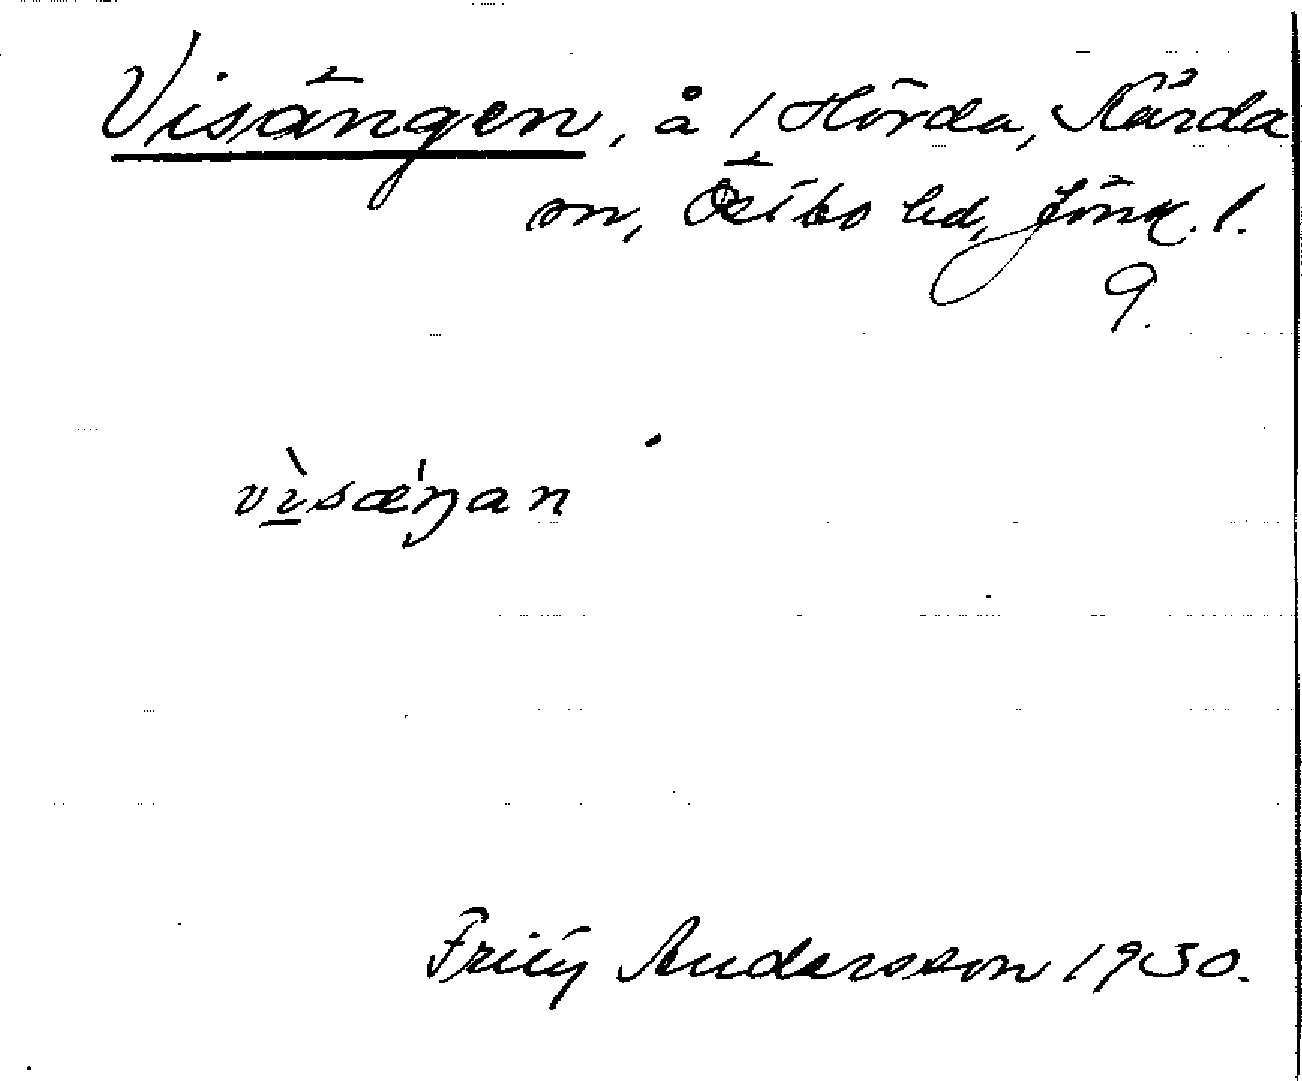 Visängen, å 1 Hörda, Kärda
sn, Östbo hd, Jönk. l.
9.
vìsæ'ŋan
Frity Andersson 1930.